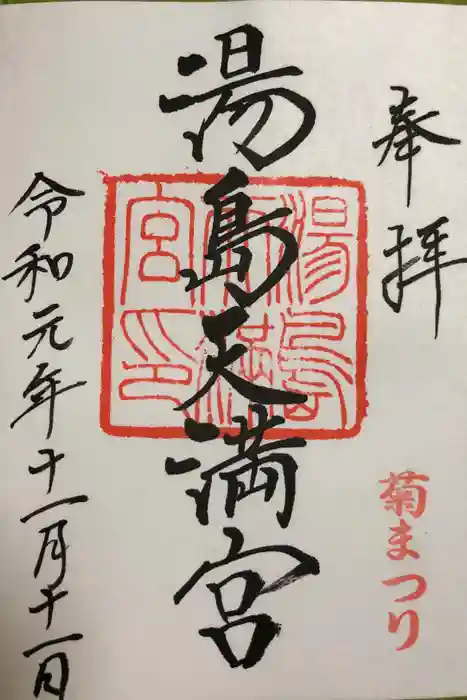 奉拝
菊まつり
湯島天満宮
湯島天満宮印
令和元年十一月十一日